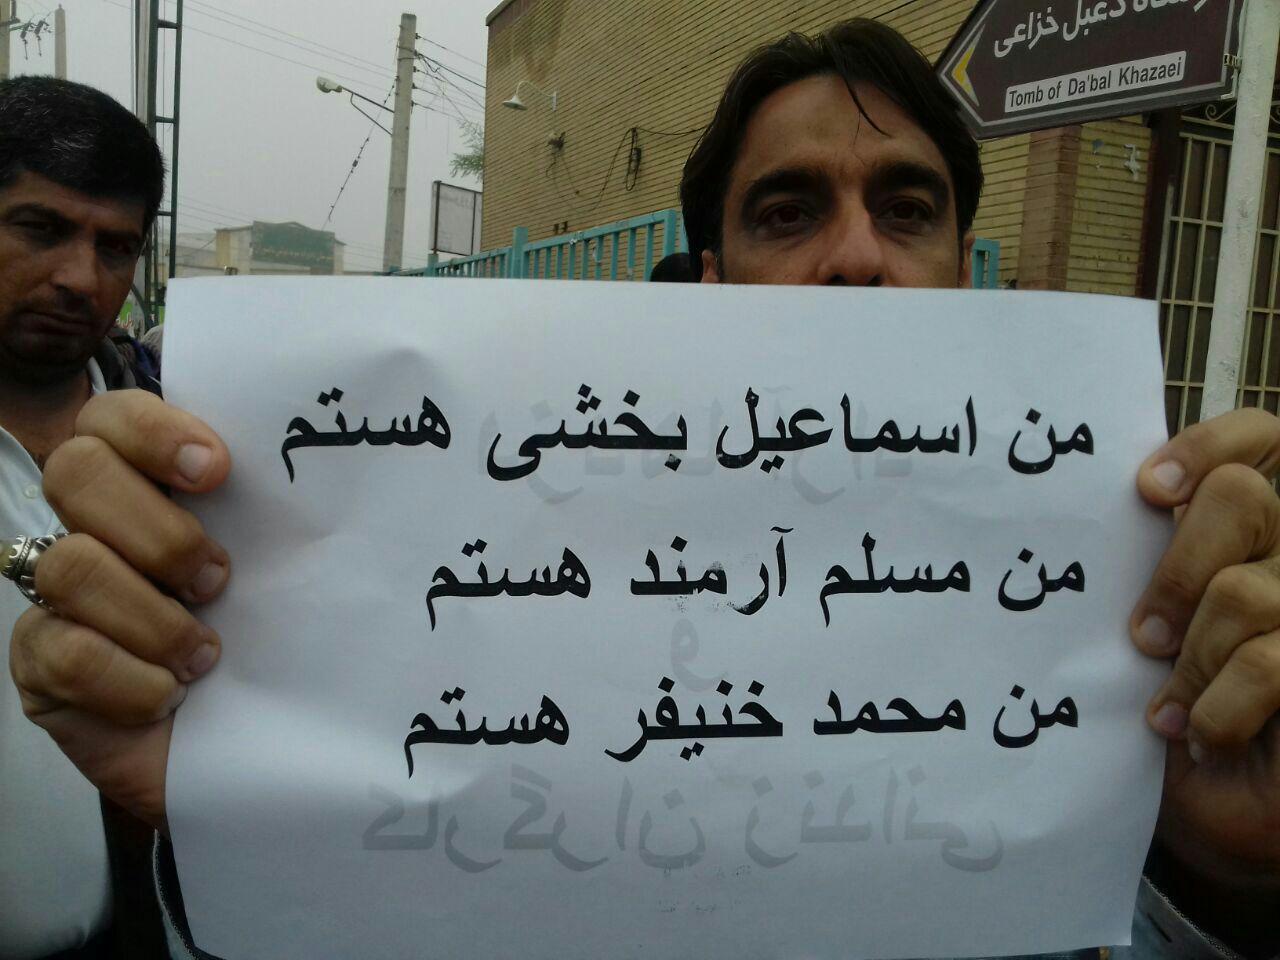 دعبل خزاعی
Tomb of Da'bal Khazaei
من اسماعیل بخشی هستم
من مسلم آرمند هستم
من محمد خنیفر هستم
و
کارگران زندانی